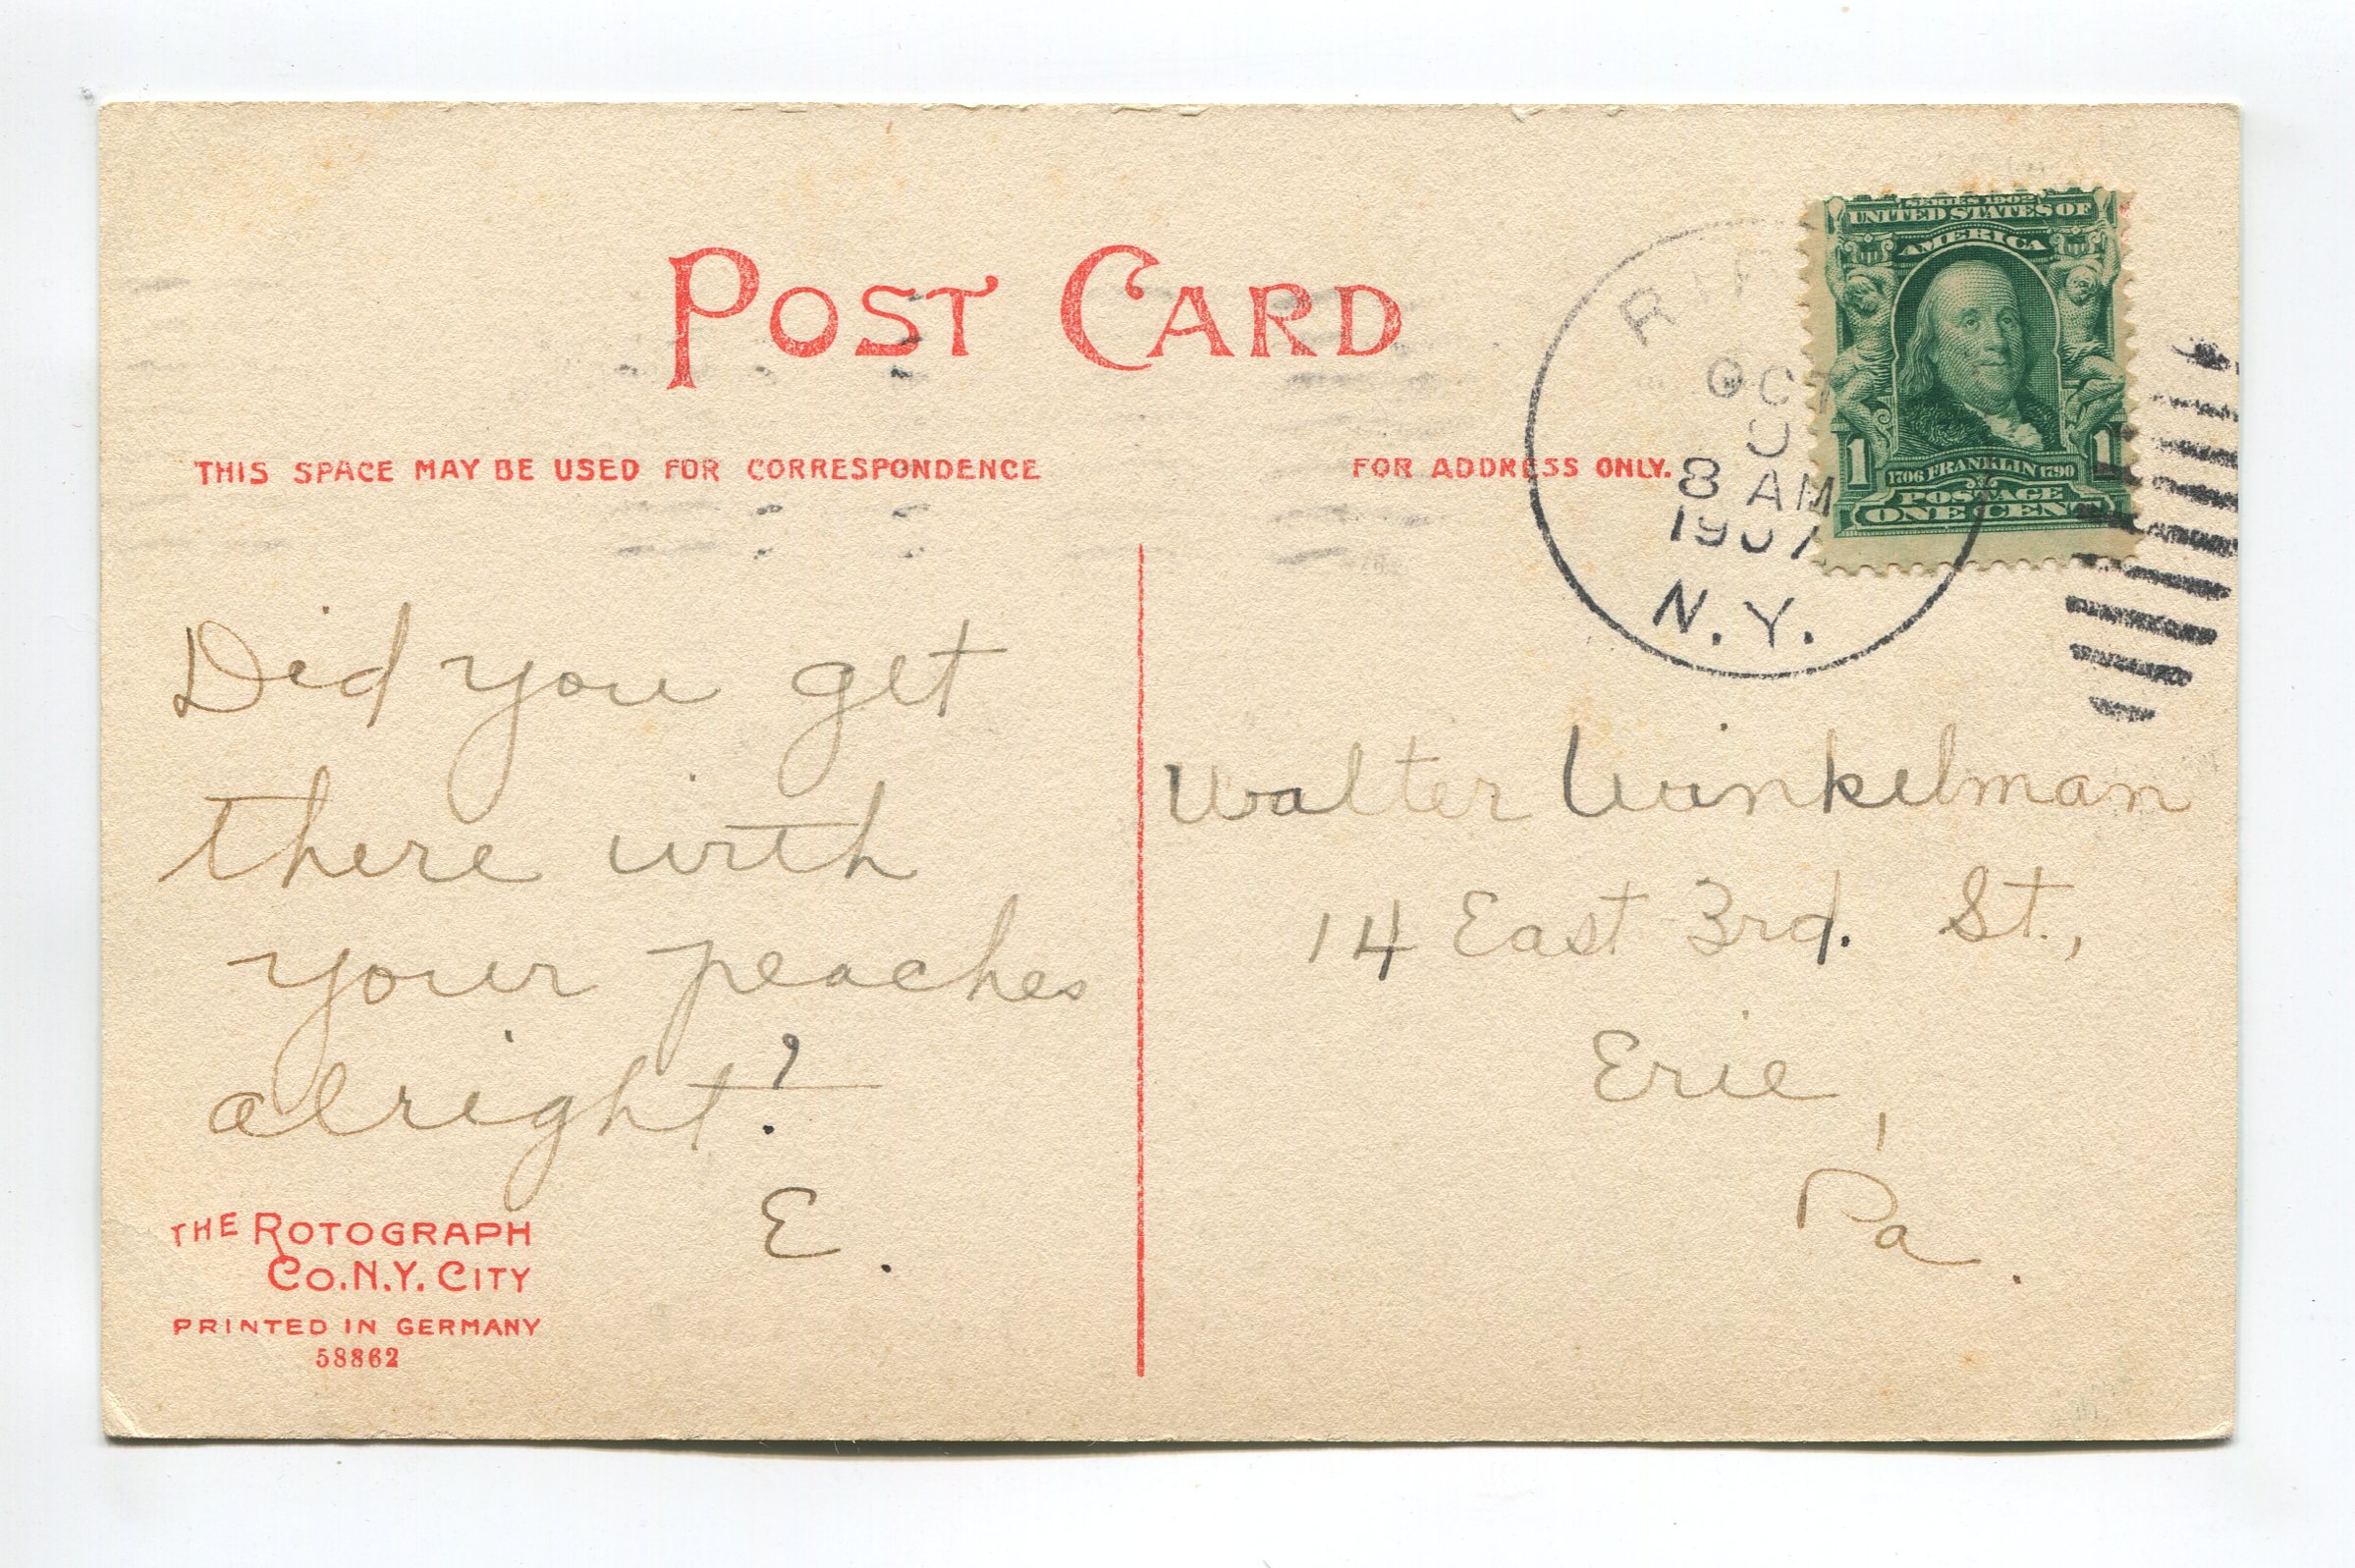 POST CARD
THIS SPACE MAY BE USED FOR CORRESPONDENCE
FOR ADDRESS ONLY.
OCT
8 AM
1907
N.Y.
SERIES 1902
UNITED STATES OF
AMERICA
1 1
1706 FRANKLIN 1790
POSTAGE
ONE CENT
Did you get
there with
your peaches
alright?
E.
Walter Winkelman
14 East 3rd. St.,
Erie,
Pa.
THE ROTOGRAPH
CO. N.Y. CITY
PRINTED IN GERMANY
58862